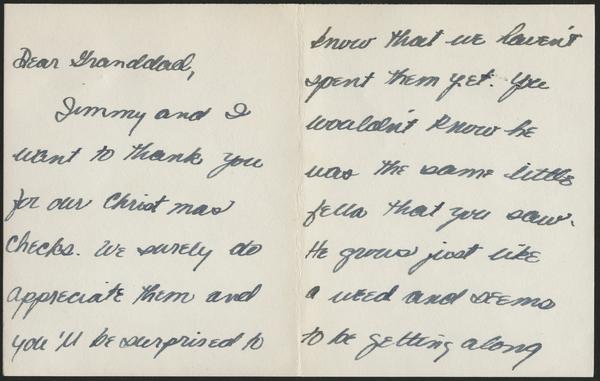 Dear Granddad,
Jimmy and I
want to thank you
for our Christmas
checks. We surely do
appreciate them and
you'll be surprised to
know that we haven't
spent them yet. You
wouldn't know he
was the same little
fella that you saw.
He grows just like
a weed and seems
to be getting along